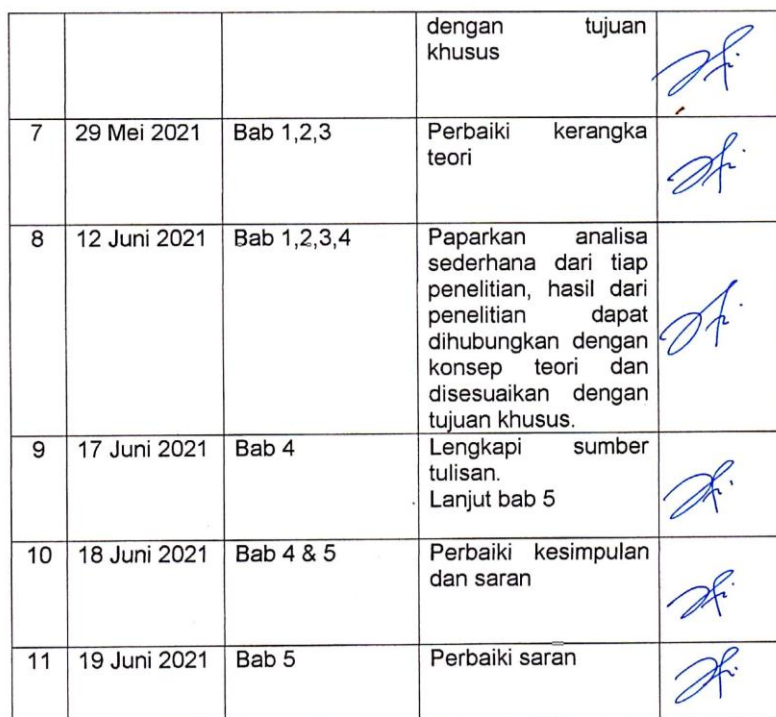 dengan tujuan
khusus
7 29 Mei 2021 Bab 1,2,3 Perbaiki kerangka
teori
8 12 Juni 2021 Bab 1,2,3,4 Paparkan analisa
sederhana dari tiap
penelitian, hasil dari
penelitian dapat
dihubungkan dengan
konsep teori dan
disesuaikan dengan
tujuan khusus.
9 17 Juni 2021 Bab 4 Lengkapi sumber
tulisan.
Lanjut bab 5
10 18 Juni 2021 Bab 4 & 5 Perbaiki kesimpulan
dan saran
11 19 Juni 2021 Bab 5 Perbaiki saran